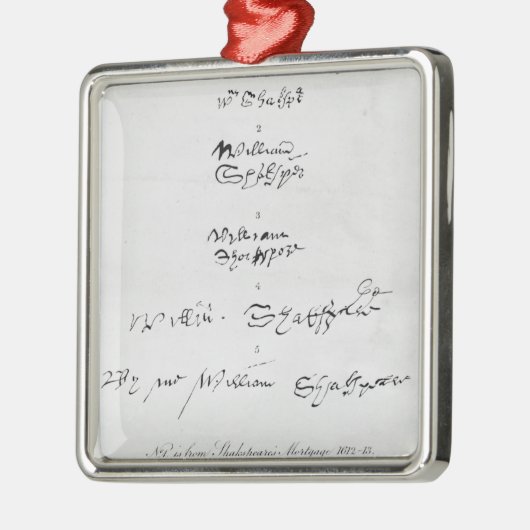 Wm Shakspe
2
William
Shakspēr
3
William
Shakspere
4
William Shakspere
5
By me William Shakspeare
No. 1. is from Shakspeare's Mortgage 1612-13.